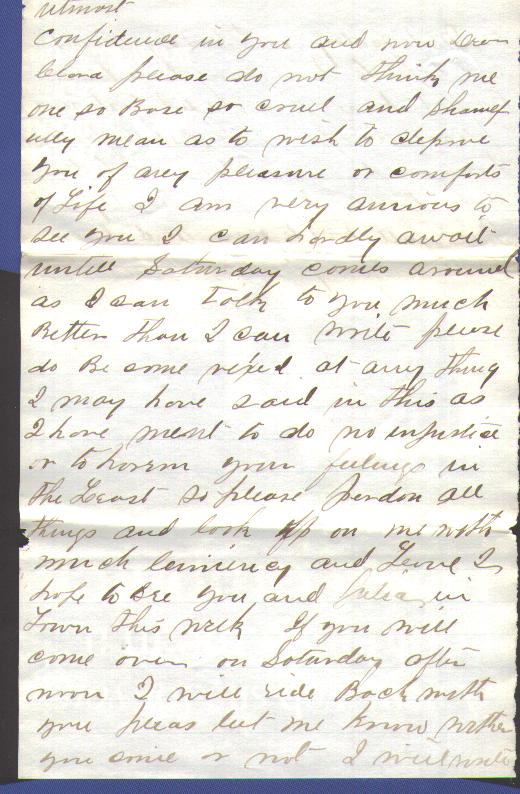 utmost
Confidence in you and now Dear
Clara please do not think me
one so Base so cruel and shamef
ully mean as to wish to deprive
you of any pleasure or comforts
of Life I am very anxious to
see you I can hardly await
untill Saturday comes around
as I can talk to you much
Better than I can write please
do Be come vexed at any thing
I may have said in this as
I have meant to do no injustice
or to harm your feelings in
the Least so please pardon all
things and look up on me with
much leniency and Love I
hope to see you and Julia in
Town this week If you will
come over on Saturday after
noon I will ride Back with
you pleas let me know wither
you come or not I will write